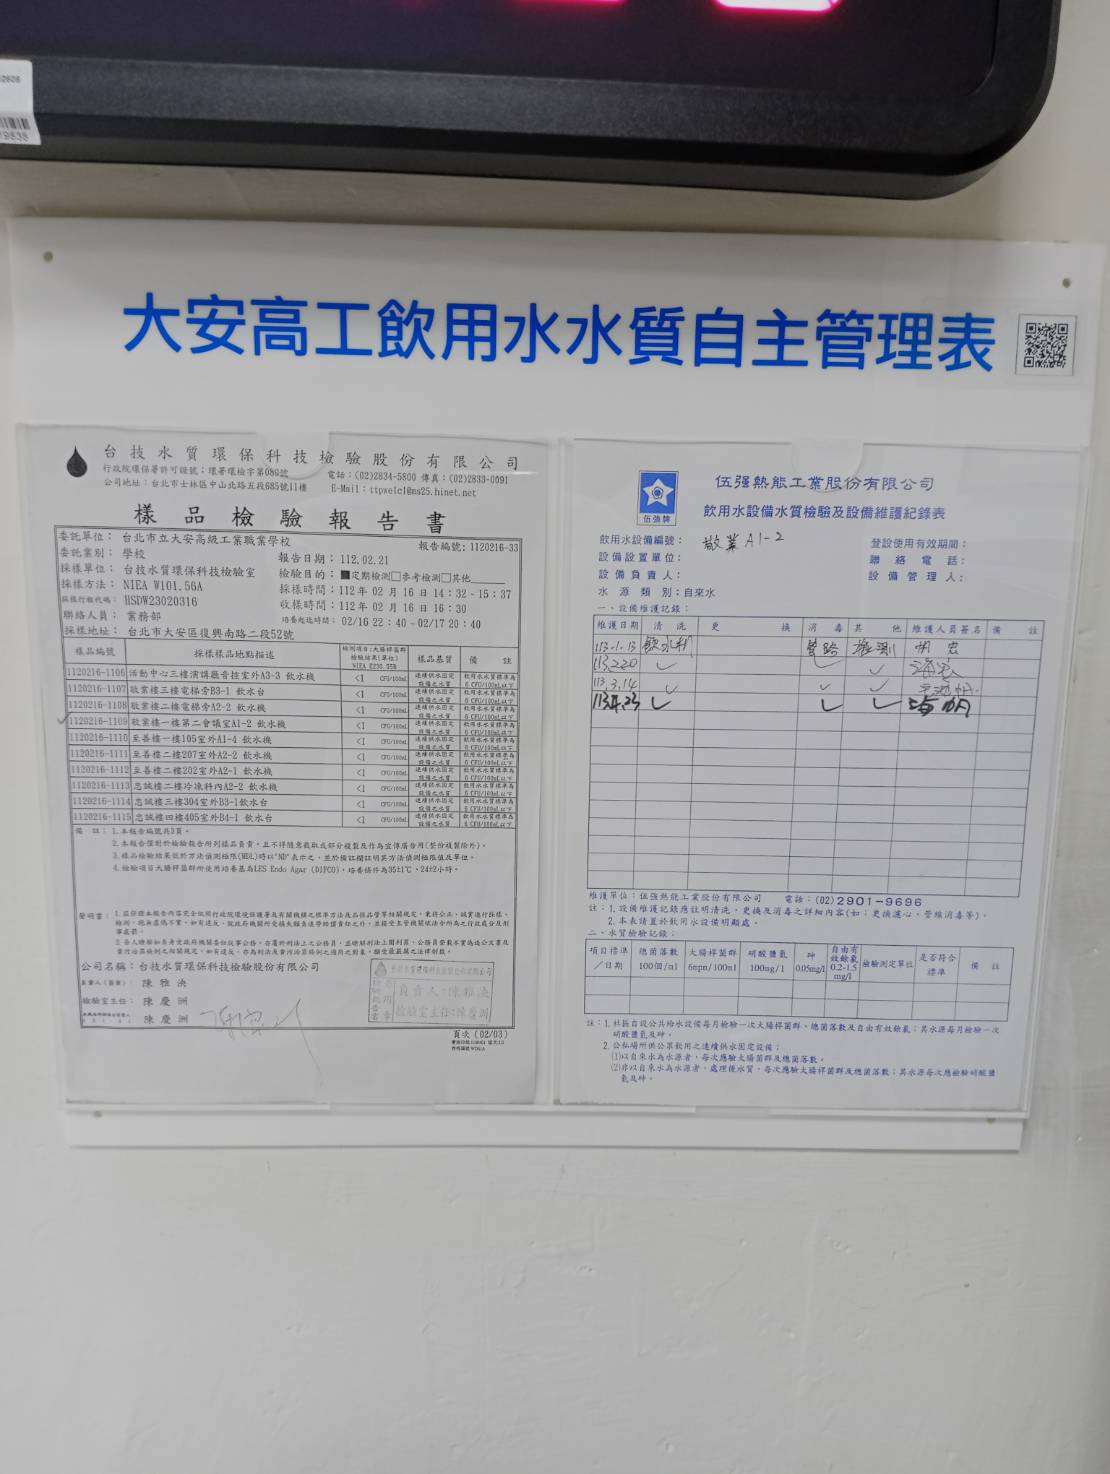 大安高工飲用水水質自主管理表
台技水質環保科技檢驗股份有限公司
行政院環保署許可證號：環署環檢字第080號 電話：(02)2834-5800 傳真：(02)2833-0091
公司地址：台北市士林區中山北路五段685號11樓 E-Mail：ttpwelcl@ms25.hinet.net
樣品檢驗報告書
委託單位： 台北市立大安高級工業職業學校 報告編號：1120216-33
委託業別： 學校 報告日期：112.02.21
採樣單位： 台技水質環保科技檢驗室 檢驗目的：■定期檢測□參考檢測□其他
採樣方法： NIEA W101.56A 採樣時間：112年 02 月 16 日 14：32 ~ 15：37
採樣行程代碼： HSDW23020316 收樣時間：112年 02 月 16 日 16：30
聯絡人員： 業務部 培養起迄時間： 02/16 22：40 ~ 02/17 20：40
採樣地址： 台北市大安區復興南路二段52號
樣品編號 採樣樣品地點描述 檢測項目:大腸桿菌群 檢驗結果(單位) NIEA E230.55B 樣品基質 備 註
1120216-1106 活動中心三樓演講廳音控室外A3-3 飲水機 <1 CFU/100mL 連續供水固定設備之水質 飲用水水質標準為6 CFU/100mL以下
1120216-1107 敬業樓三樓電梯旁B3-1 飲水台 <1 CFU/100mL 連續供水固定設備之水質 飲用水水質標準為6 CFU/100mL以下
1120216-1108 敬業樓二樓電梯旁A2-2 飲水機 <1 CFU/100mL 連續供水固定設備之水質 飲用水水質標準為6 CFU/100mL以下
1120216-1109 敬業樓一樓第二會議室A1-2 飲水機 <1 CFU/100mL 連續供水固定設備之水質 飲用水水質標準為6 CFU/100mL以下
1120216-1110 至善樓一樓105室外A1-4 飲水機 <1 CFU/100mL 連續供水固定設備之水質 飲用水水質標準為6 CFU/100mL以下
1120216-1111 至善樓二樓207室外A2-2 飲水機 <1 CFU/100mL 連續供水固定設備之水質 飲用水水質標準為6 CFU/100mL以下
1120216-1112 至善樓二樓202室外A2-1 飲水機 <1 CFU/100mL 連續供水固定設備之水質 飲用水水質標準為6 CFU/100mL以下
1120216-1113 忠誠樓二樓冷凍科內A2-2 飲水機 <1 CFU/100mL 連續供水固定設備之水質 飲用水水質標準為6 CFU/100mL以下
1120216-1114 忠誠樓三樓304室外B3-1飲水台 <1 CFU/100mL 連續供水固定設備之水質 飲用水水質標準為6 CFU/100mL以下
1120216-1115 忠誠樓四樓405室外B4-1 飲水台 <1 CFU/100mL 連續供水固定設備之水質 飲用水水質標準為6 CFU/100mL以下
備 註：1.本報告編號共3頁。
2.本報告僅對於檢驗報告所列樣品負責，且不得隨意截取或部分複製及作為宣傳廣告用(整份複製除外)。
3.樣品檢驗結果低於方法偵測極限(MDL)時以"ND"表示之，並於備註欄註明其方法偵測極限值及單位。
4.檢驗項目大腸桿菌群所使用培養基為LES Endo Agar (DIFCO)，培養條件為35±1℃、24±2小時。
聲明書：
公司名稱：台技水質環保科技檢驗股份有限公司
負責人(簽章)： 陳雅泱
檢驗室主任： 陳慶洲
陳慶洲
負責人:陳雅泱
檢驗室主任:陳慶洲
頁次（02/03）
伍強牌
伍强熱能工業股份有限公司
飲用水設備水質檢驗及設備維護紀錄表
飲用水設備編號： 敬業 A1-2 登設使用有效期間：
設備設置單位： 聯絡電話：
設備負責人： 設備管理人：
水源類別：自來水
一、設備維護記錄：
維護日期 清 洗 更 換 消 毒 其 他 維護人員簽名 備 註
113.1.13 飲水機 管路 檢測
113.2.20 ✓ ✓ ✓
113.3.14 ✓ ✓ ✓
113.4.23 ✓ ✓ ✓ 海帆
維護單位：伍强熱能工業股份有限公司 電話：(02)2901-9696
註：1.設備維護記錄應註明清洗、更換及消毒之詳細內容(如：更換濾心、管線消毒等)。
2.本表請置於飲用水設備明顯處。
二、水質檢驗記錄：
項目標準／日期 總菌落數 100個/ml 大腸桿菌群 6mpn/100ml 硝酸鹽氮 100mg/l 砷 0.05mg/l 自由有效餘氯 0.2-1.5 mg/l 檢驗測定單位 是否符合標準 備 註
註：1.社區自設公共給水設備每月檢驗一次大腸桿菌群、總菌落數及自由有效餘氯；其水源每月檢驗一次硝酸鹽氮及砷。
2.公私場所供公眾飲用之連續供水固定設備：
(1)以自來水為水源者，每次應驗大腸菌群及總菌落數。
(2)非以自來水為水源者，處理後水質，每次應驗大腸桿菌群及總菌落數；其水源每次應檢驗硝酸鹽氮及砷。